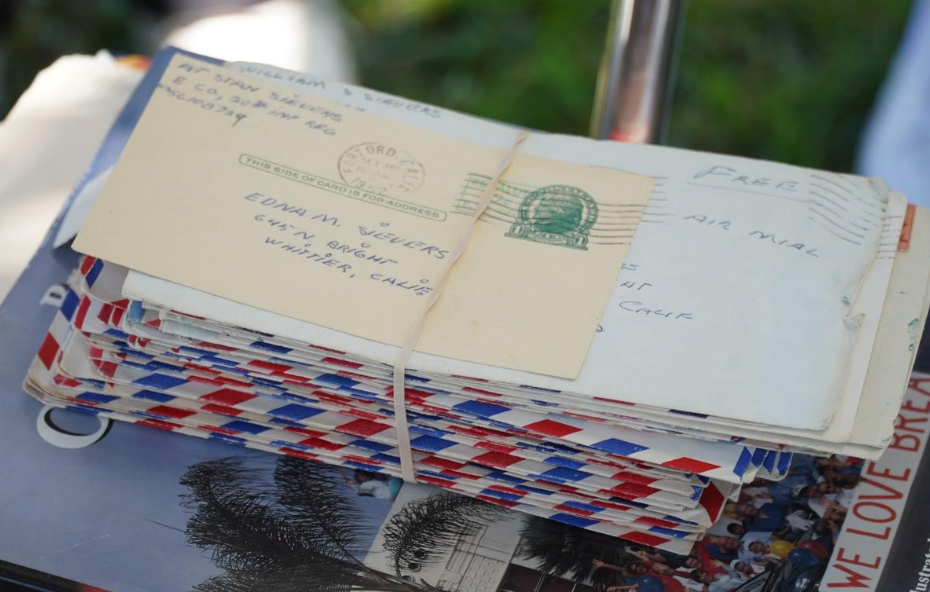 PVT STAN SIEVERS
E CO, 20TH INF REG
WILLIAM S SIEVERS
ORD, C
1952
THIS SIDE OF CARD IS FOR ADDRESS
EDNA M. SIEVERS
645 N. BRIGHT
WHITTIER, CALIF
1
FREE
AIR MIAL
CALIF
WE LOVE BREA